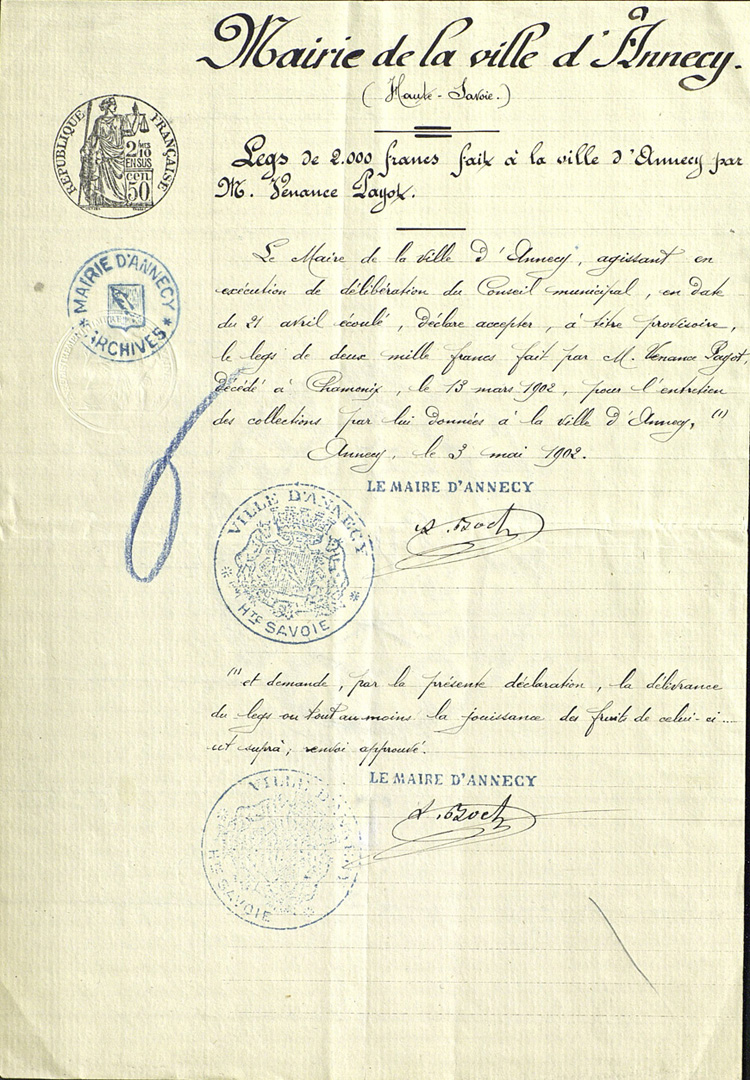 Mairie de la ville d'Annecy.
(Haute-Savoie.)
RÉPUBLIQUE FRANÇAISE
2/10
EN SUS
50 cen
Legs de 2.000 francs fait à la ville d'Annecy par
M. Venance Payot.
MAIRIE D'ANNECY
ARCHIVES
Le Maire de la ville d'Annecy, agissant en
exécution de délibération du Conseil municipal, en date
du 21 avril écoulé, déclare accepter, à titre provisoire,
le legs de deux mille francs fait par M. Venance Payot,
décédé à Chamonix, le 13 mars 1902, pour l'entretien
des collections par lui données à la ville d'Annecy, (1)
Annecy, le 3 mai 1902.
LE MAIRE D'ANNECY
VILLE D'ANNECY
HTE SAVOIE
(1) et demande, par la présente déclaration, la délivrance
du legs ou tout au moins la jouissance des fruits de celui-ci ....
ut suprà; renvoi approuvé.
LE MAIRE D'ANNECY
VILLE D'ANNECY
HTE SAVOIE